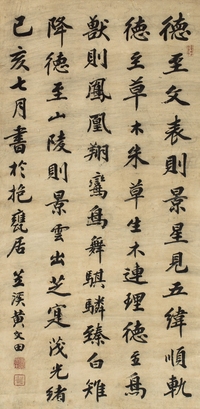 德至文表則景星見五緯順軌
德至草木朱草生木連理德至鳥
獸則鳳凰翔鸞鳥舞騏驎臻白雉
降德至山陵則景雲出芝寔茂光緒
己亥七月書於抱甕居笠溪黃文田